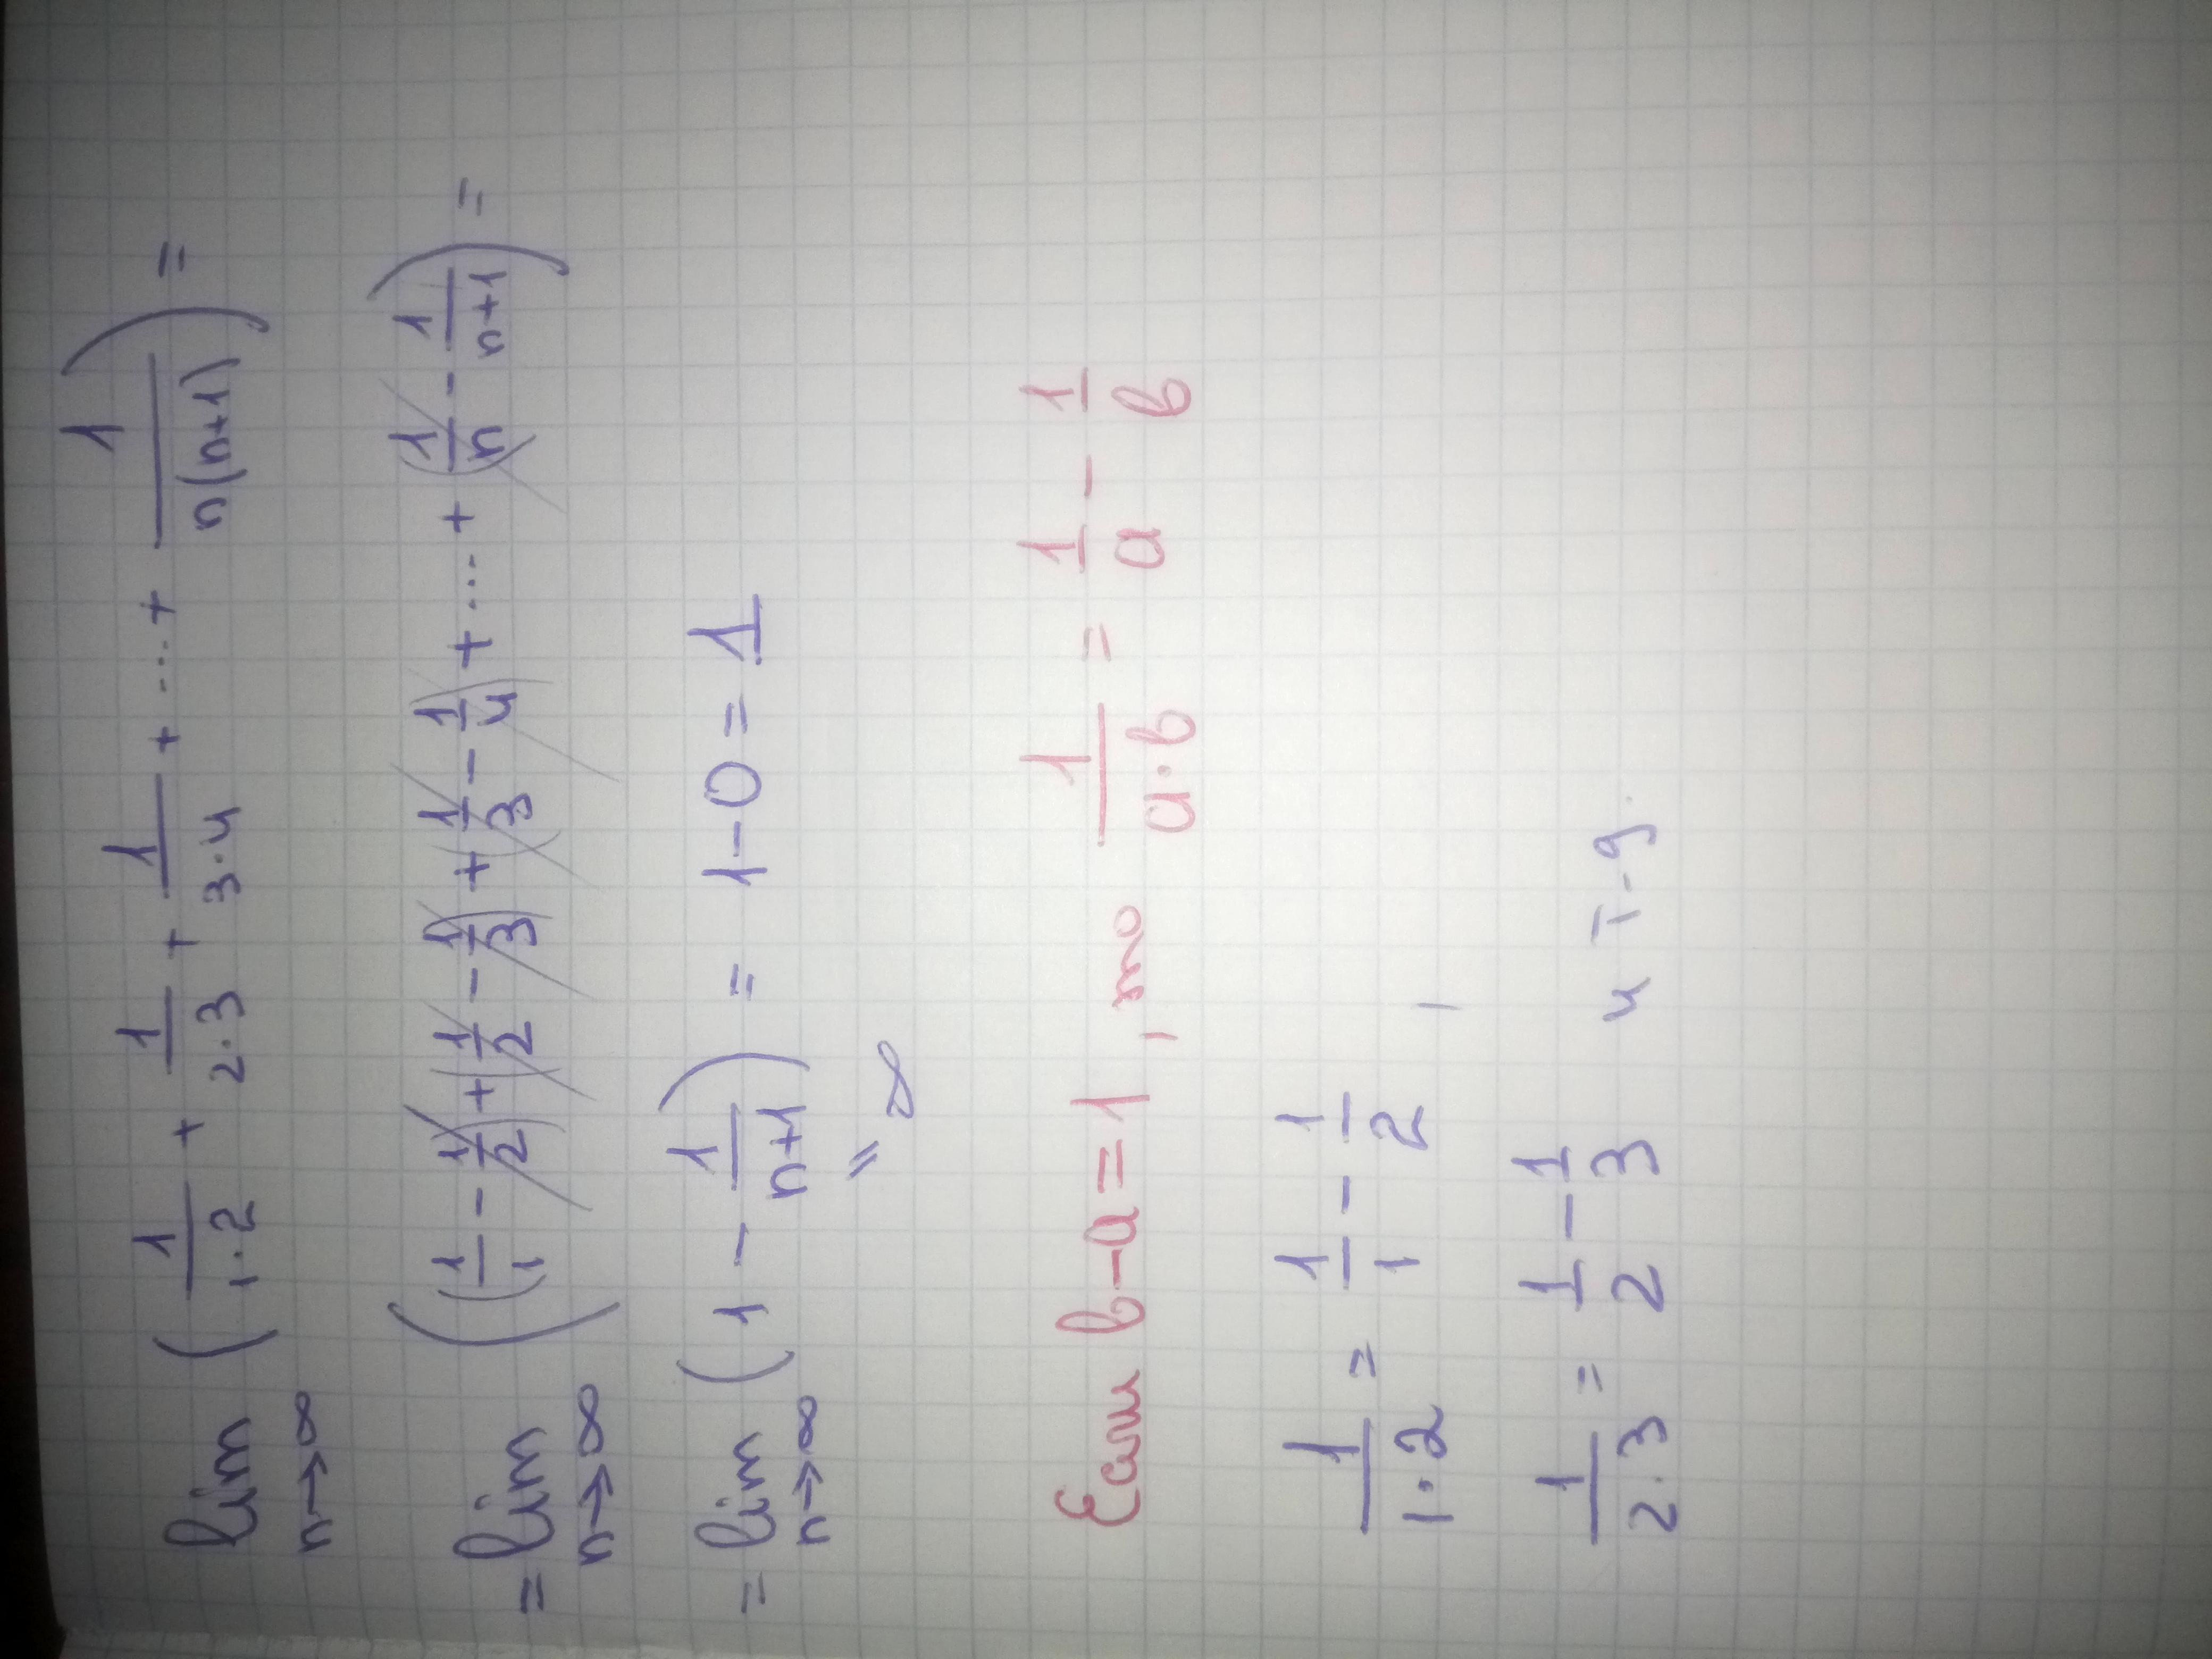 lim n→∞ (1/(1·2) + 1/(2·3) + 1/(3·4) + ... + 1/(n(n+1))) =
= lim n→∞ ((1/1 - 1/2) + (1/2 - 1/3) + (1/3 - 1/4) + ... + (1/n - 1/(n+1))) =
= lim n→∞ (1 - 1/(n+1)) = 1 - 0 = 1
= ∞
Если в-а=1, то 1/(а·в) = 1/а - 1/в
1/(1·2) = 1/1 - 1/2 ,
1/(2·3) = 1/2 - 1/3 и т-д.